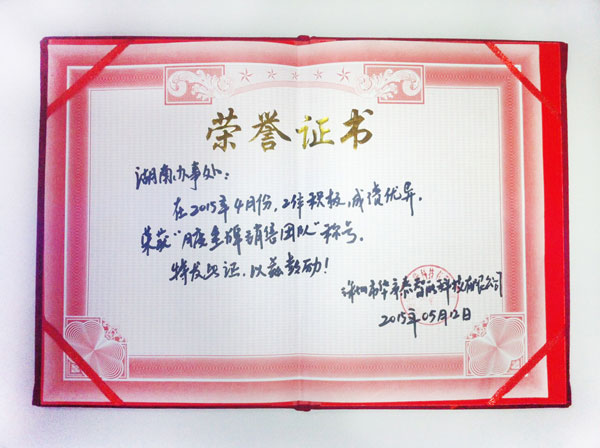 荣誉证书
湖南办事处:
在2015年4月份,工作积极,成绩优异,
荣获"月度金牌销售团队"称号。
特发此证,以兹鼓励!
深圳市华士泰智能科技有限公司
2015年05月12日